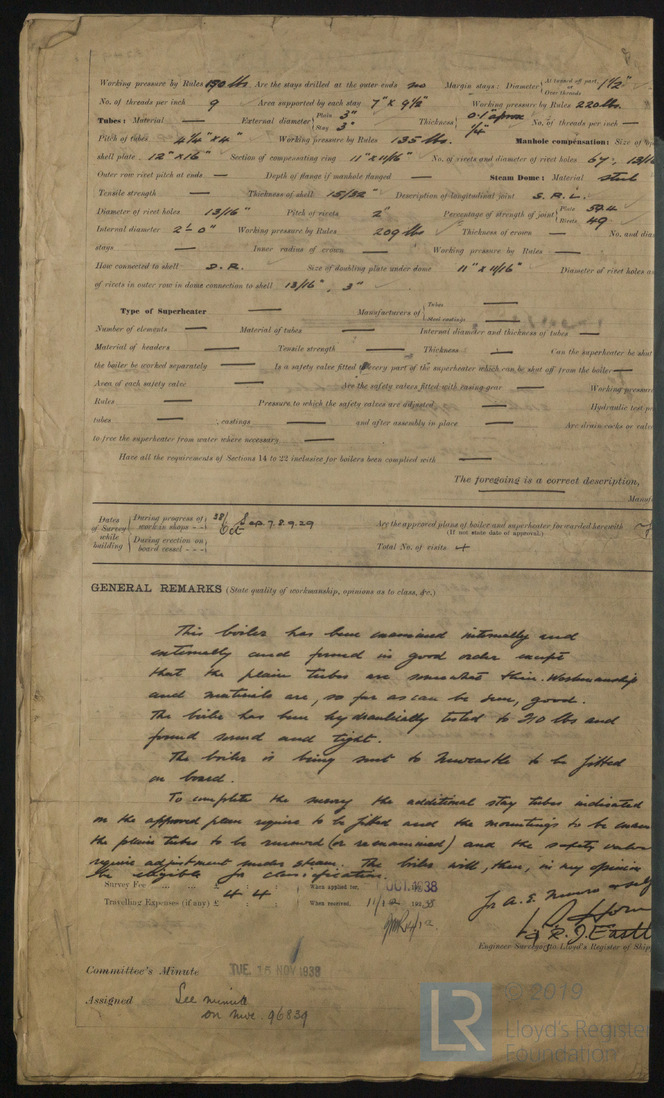 Working pressure by Rules 150 lbs Are the stays drilled at the outer ends no Margin stays: Diameter { At turned off part, or Over threads 1½"
No. of threads per inch 9 Area supported by each stay 7" x 9½" Working pressure by Rules 220 lbs.
Tubes: Material — External diameter { Plain 3" Stay 3" Thickness { 0.1" approx ¼" No. of threads per inch —
Pitch of tubes 4¼" x 4" Working pressure by Rules 135 lbs. Manhole compensation: Size of
shell plate 12" x 16" Section of compensating ring 11" x 11/16" No. of rivets and diameter of rivet holes 13/16
Outer row rivet pitch at ends — Depth of flange if manhole flanged — Steam Dome: Material steel
Tensile strength — Thickness of shell 15/32" Description of longitudinal joint S. R. L.
Diameter of rivet holes 13/16" Pitch of rivets 2" Percentage of strength of joint { Plate 59.4 Rivets 49
Internal diameter 2'-0" Working pressure by Rules 209 lbs Thickness of crown — No. and
stays — Inner radius of crown — Working pressure by Rules —
How connected to shell S. R. Size of doubling plate under dome 11" x 11/16" Diameter of rivet holes
of rivets in outer row in dome connection to shell 13/16", 3"
Type of Superheater — Manufacturers of { Tubes — Steel castings —
Number of elements — Material of tubes — Internal diameter and thickness of tubes —
Material of headers — Tensile strength — Thickness — Can the superheater be shut
the boiler be worked separately — Is a safety valve fitted to every part of the superheater which can be shut off from the boiler —
Area of each safety valve — Are the safety valves fitted with easing gear — Working pressure
Rules — Pressure to which the safety valves are adjusted — Hydraulic test
tubes — castings — and after assembly in place — Are drain cocks or
to free the superheater from water where necessary —
Have all the requirements of Sections 14 to 22 inclusive for boilers been complied with —
The foregoing is a correct description,
Dates of Survey while building { During progress of work in shops - - 38/ Oct Sep. 7.8.9.29 Are the approved plans of boiler and superheater forwarded herewith
(If not state date of approval.)
During erection on board vessel - - - Total No. of visits 4
GENERAL REMARKS (State quality of workmanship, opinions as to class, &c.)
This boiler has been examined internally and
externally and found in good order except
that the plain tubes are somewhat thin. Workmanship
and materials are, so far as can be seen, good.
The boiler has been hydraulically tested to 210 lbs and
found sound and tight.
The boiler is being sent to Newcastle to be fitted
on board.
To complete the survey the additional stay tubes indicated
on the approved plan require to be fitted and the mountings to be
the plain tubes to be renewed (or reexamined) and the safety valves
require adjustment under steam. The boiler will, then, in my opinion
be eligible for classification.
Survey Fee ... ... £ 4 : 4 : When applied for, OCT. 1938
Travelling Expenses (if any) £ : : When received, 1938
for A. E. Munro & self
R. J. Eastl
Engineer Surveyor to Lloyd's Register of Ship
Committee's Minute TUE. 15 NOV 1938
Assigned See minute
on Nwc. 96839
LR
© 2019
Lloyd's Register
Foundation